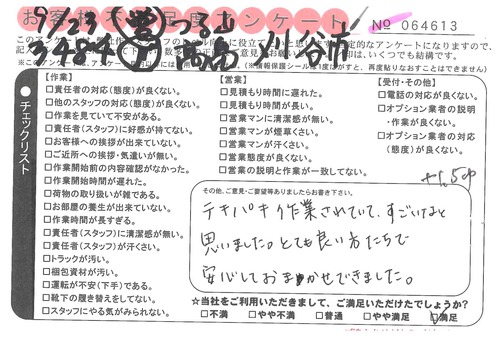 お客様不満足度アンケート
9/23(豊)つる山
No 064613
3484(高)高畠 刈谷市
このアンケートは
役立て
否定的なアンケートになりますので、
いくつでも結構です。
※このアンケート
(※情報保護シールは1度はがすと、再度貼りなおすことはできません)
チェックリスト
【作業】
□責任者の対応(態度)が良くない。
□他のスタッフの対応(態度)が良くない。
□作業を見ていて不安がある。
□責任者(スタッフ)に好感が持てない。
□お客様への挨拶が出来ていない。
□ご近所への挨拶・気遣いが無い。
□作業開始前の内容確認がなかった。
□作業開始時間が遅れた。
□荷物の取り扱いが雑である。
□お部屋の養生が出来ていない。
□作業時間が長すぎる。
□責任者(スタッフ)に清潔感が無い。
□責任者(スタッフ)が汗くさい。
□トラックが汚い。
□梱包資材が汚い。
□運転が不安(下手)である。
□靴下の履き替えをしてない。
□スタッフにやる気がみられない。
【営業】
□見積もり時間に遅れた。
□見積もり時間が長い。
□営業マンに清潔感が無い。
□営業マンが煙草くさい。
□営業マンが汗くさい。
□営業態度が良くない。
□営業の説明と作業が一致してない。
【受付・その他】
□電話の対応が良くない。
□オプション業者の説明
・作業が良くない。
□オプション業者の対応
(態度)が良くない。
その他、ご意見・ご要望等ありましたらお書き下さい。
テキパキ作業されていて、すごいなと
思いました。とても良い方たちで
安心しておまかせできました。
☆当社をご利用いただきまして、ご満足いただけたでしょうか?
□不満 □やや不満 □普通 □やや満足 □満足